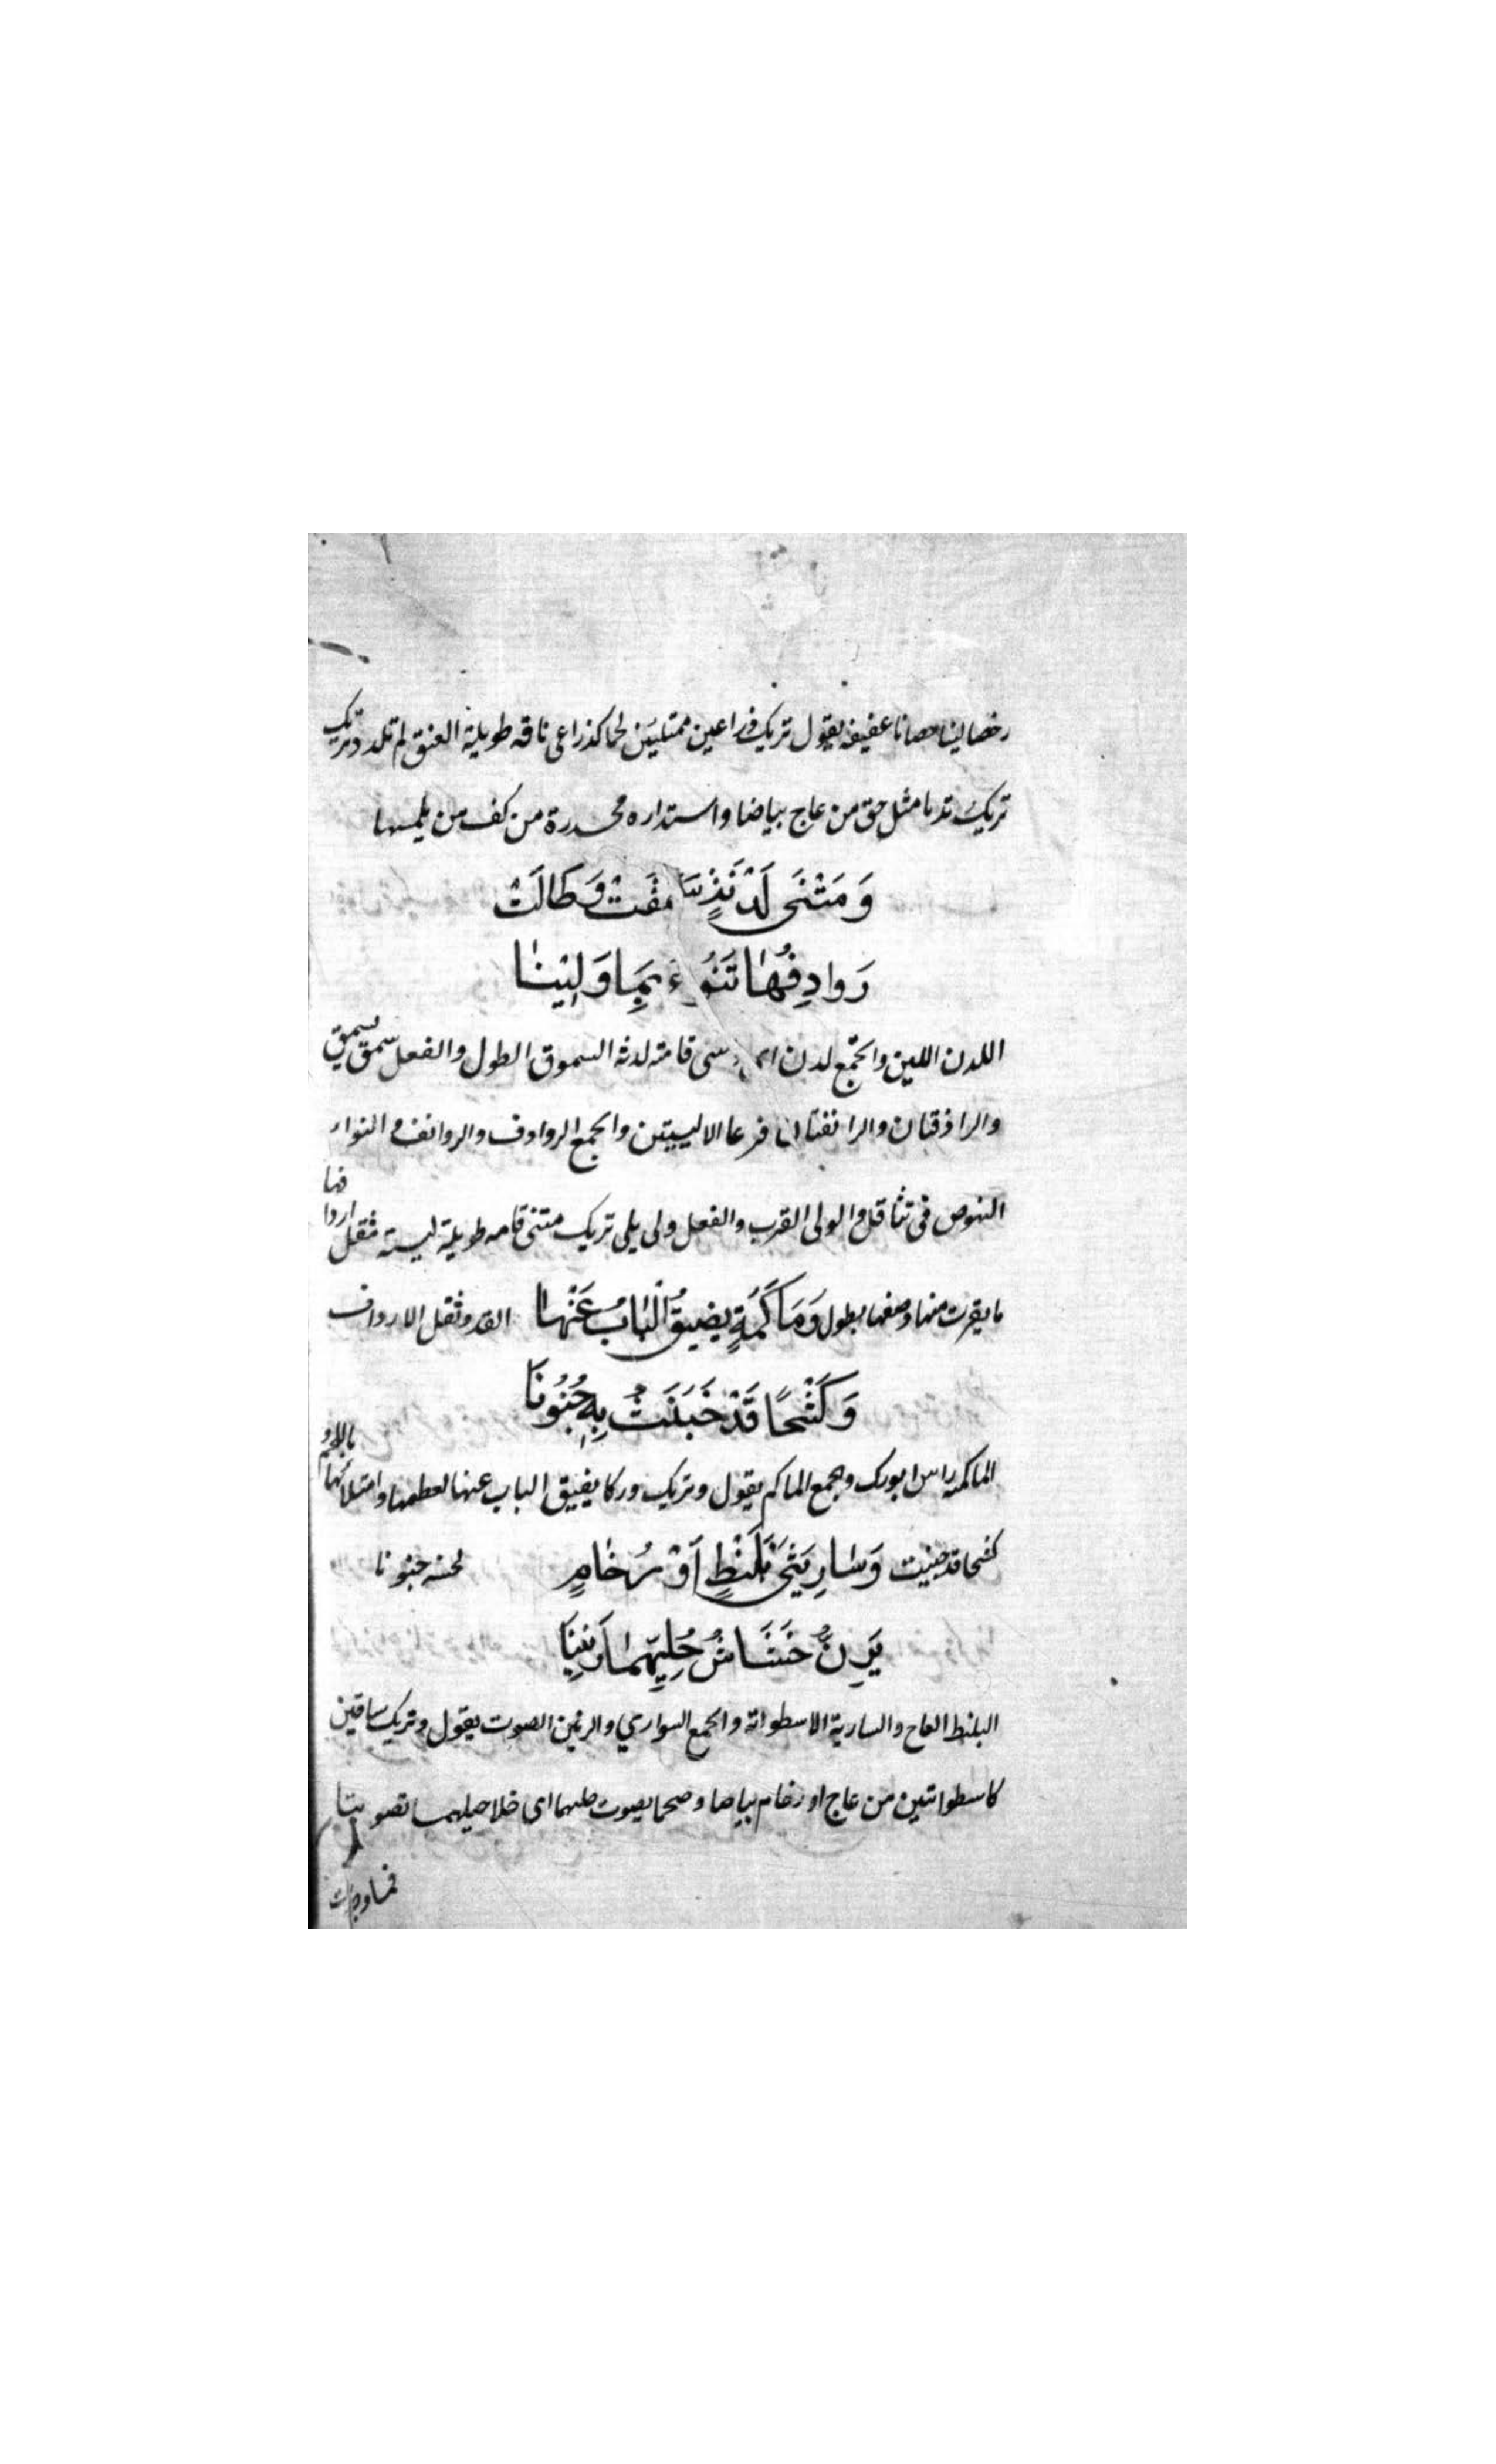 رخصا لينا حصانا عفيفه يقول تريك ذراعين ممتليين لحما كذراعى ناقه طويلة العنق لم تلد وتريك
تريك ثديا مثل حق من عاج بياضا واستداره محدرة من كف من يلمسها
وَمَتْنَى لَدْنَةٍ سمقت وَطَالَتْ
رَوَادِفُهَا تَنُوءُ بِمَا وَلِيْنَا
اللدن اللين والجمع لدن اى متنى قامته لدنه السموق الطول والفعل سمق يسمق
والرادفتان والرانفتان فرعا الاليتين والجمع الروادف والروانف والنوار
النهوض فى تثاقل والولى القرب والفعل ولى يلى تريك متنى قامه طويلة لينه ثقل اردا فها
ما يقرب منها وصفها بطول القد وثقل الارداف
وَمَأكَمَةٍ يَضِيقُ الْبَابُ عَنْهَا
وَكَشْحًا قَدْ جَنَنَتْ بِهِ جُنُونَا
الماكمة راس الورك وجمع الماكم يقول وتريك وركا يضيق الباب عنها لعظمها وامتلائها باللحم و
كشحا قد جننت لحسنه جنونا
وَسَارِيَتَىْ بَلَنْطٍ اَوْ رُخَامٍ
يَرِنُّ خَشَاشُ حُلِيِّهِمَا رَنِينَا
البلنط العاج والسارية الاسطوانة والجمع السواري والرنين الصوت يقول وتريك ساقين
كاسطوانتين من عاج او رخام بياضا وضخما يصوت حليهما اى خلاخيلهما تصويتا
فما وجدت